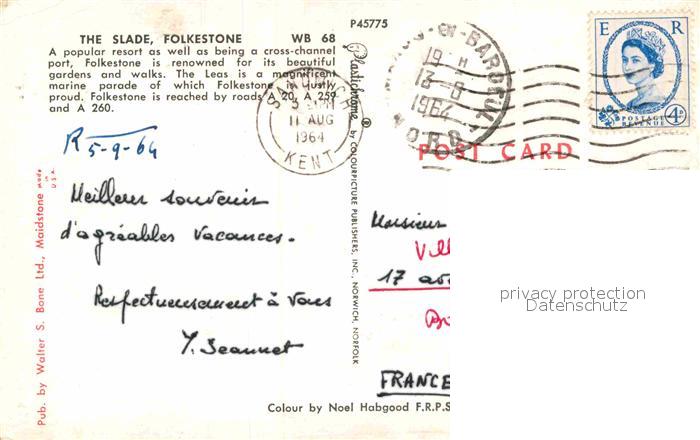 THE SLADE, FOLKESTONE WB 68
A popular resort as well as being a cross-channel
port, Folkestone is renowned for its beautiful
gardens and walks. The Leas is a magnificent
marine parade of which Folkestone is justly
proud. Folkestone is reached by roads A 20, A 259
and A 260.
R 5-9-64
Meilleur souvenir
d'agréables vacances.
Respectueusement à vous
Y. Jeannet
Pub. by Walter S. Bane Ltd., Maidstone
made in U.S.A.
P45775
Plastichrome ® BY COLOURPICTURE PUBLISHERS, INC., NORWICH, NORFOLK
11 AUG
1964
KENT
EN-BAROEUL
19 H
13-8
1964
NORD
E R
POSTAGE
REVENUE
4D
POST CARD
Monsieur
17
FRANCE
privacy protection
Datenschutz
Colour by Noel Habgood F.R.P.S